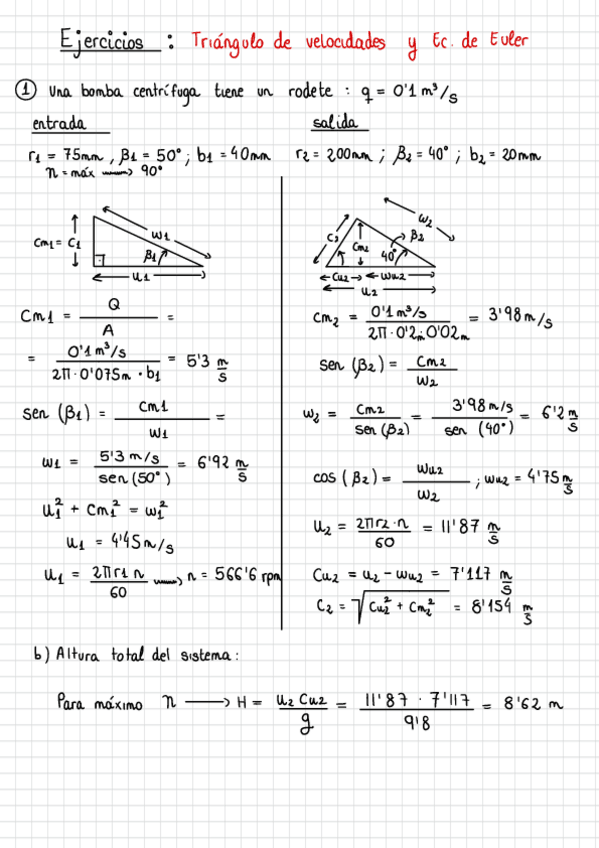 Ejercicios : Triángulo de velocidades y Ec. de Euler
① Una bomba centrífuga tiene un rodete : q = 0'1 m³/s
entrada
r1 = 75mm , β1 = 50° ; b1 = 40mm
η = máx ⟿ 90°
Cm1 = C1
w1
β1
u1
Cm1 = Q / A =
= 0'1 m³/s / 2π · 0'075m · b1 = 5'3 m/s
sen (β1) = cm1 / w1 =
w1 = 5'3 m/s / sen (50°) = 6'92 m/s
u1² + Cm1² = w1²
u1 = 4'45 m/s
u1 = 2πr1 n / 60 ⟿ n = 566'6 rpm
salida
r2 = 200mm ; β2 = 40° ; b2 = 20mm
w2
C2
Cm2
β2
40°
Cu2
wu2
u2
cm2 = 0'1 m³/s / 2π · 0'2m · 0'02m = 3'98 m/s
sen (β2) = Cm2 / w2
w2 = Cm2 / sen (β2) = 3'98 m/s / sen (40°) = 6'2 m/s
cos (β2) = wu2 / w2 ; wu2 = 4'75 m/s
u2 = 2πr2 · n / 60 = 11'87 m/s
Cu2 = u2 - wu2 = 7'117 m/s
C2 = √(Cu2² + Cm2²) = 8'154 m/s
b) Altura total del sistema :
Para máximo η ⟶ H = u2 Cu2 / g = 11'87 · 7'117 / 9'8 = 8'62 m